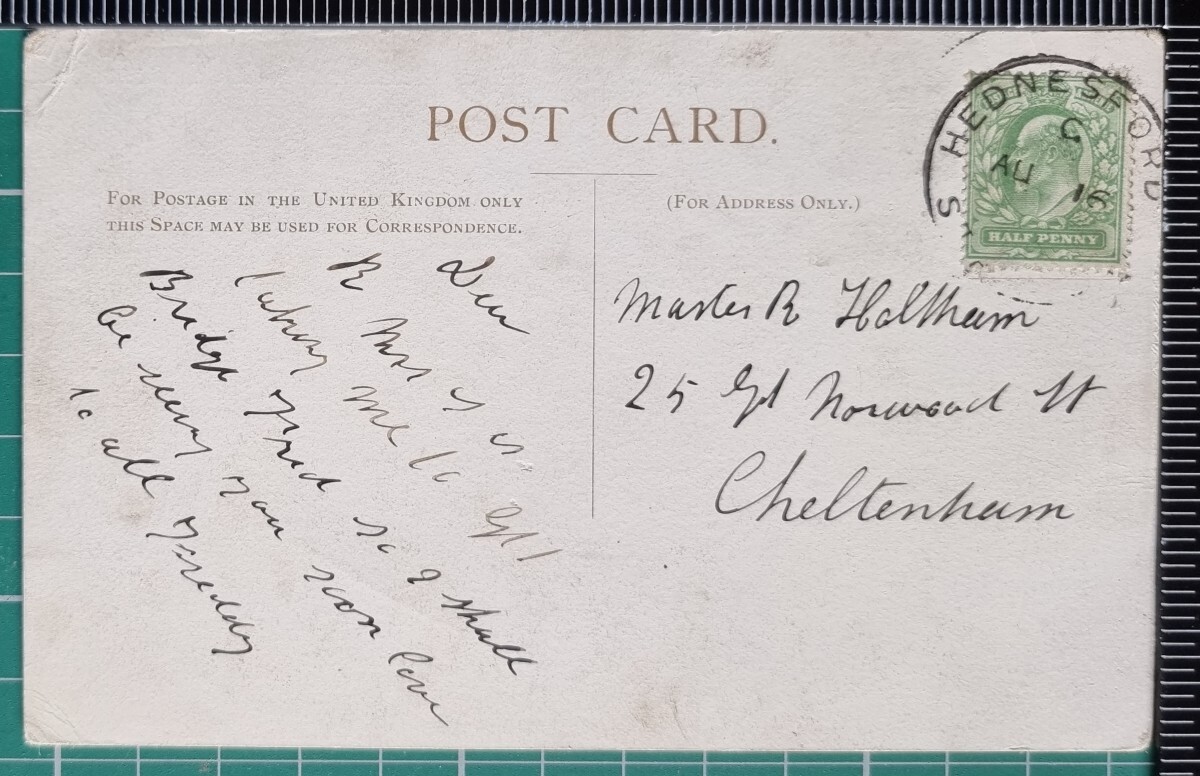 POST CARD.
FOR POSTAGE IN THE UNITED KINGDOM ONLY
THIS SPACE MAY BE USED FOR CORRESPONDENCE.
(FOR ADDRESS ONLY.)
S. HEDNESFORD
C
AU 16
HALF PENNY
Dear
R Mrs J is
taking me to Gt
Bridge Fried so I shall
be seeing you soon love
to all Freddy
Master R Holtham
25 Gt Norwood St
Cheltenham